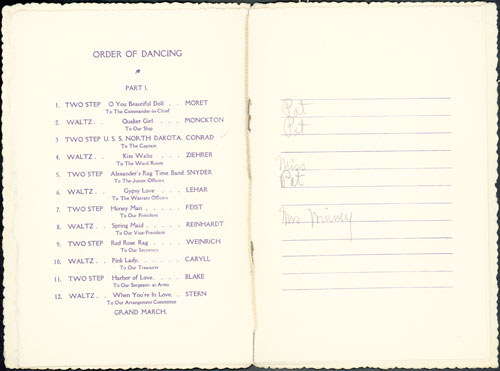 ORDER OF DANCING
PART I.
1. TWO STEP O You Beautiful Doll . . MORET
To The Commander-in-Chief
2. WALTZ . . Quaker Girl . . . MONCKTON
To Our Ship
3 TWO STEP U. S. S. NORTH DAKOTA. CONRAD
To The Captain
4. WALTZ . . Kiss Waltz . . . ZIEHRER
To The Ward Room
5. TWO STEP Alexander's Rag Time Band SNYDER
To The Junior Officers
6. WALTZ . . Gypsy Love . . . . LEHAR
To The Warrant Officers
7. TWO STEP Honey Man . . . . . FEIST
To Our President
8. WALTZ . . Spring Maid . . . . REINHARDT
To Our Vice-President
9. TWO STEP Red Rose Rag . . . WEINRICH
To Our Secretary
10. WALTZ . . Pink Lady. . . . . CARYLL
To Our Treasurer
11. TWO STEP Harbor of Love. . . . BLAKE
To Our Sergeant at Arms
12. WALTZ . . When You're In Love. . STERN
To Our Arrangement Committee
GRAND MARCH.
Pat
Pat
Miss
Pat